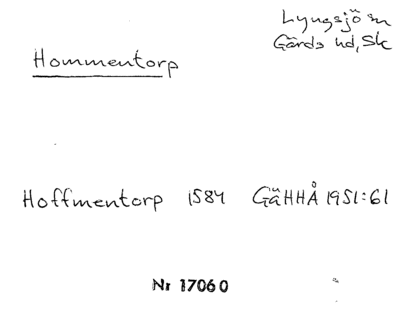 Lyngsjö sn
Gärds hd, Sk
Hommentorp
Hoffmentorp 1584 GäHHÅ 1951:61
Nr 17060